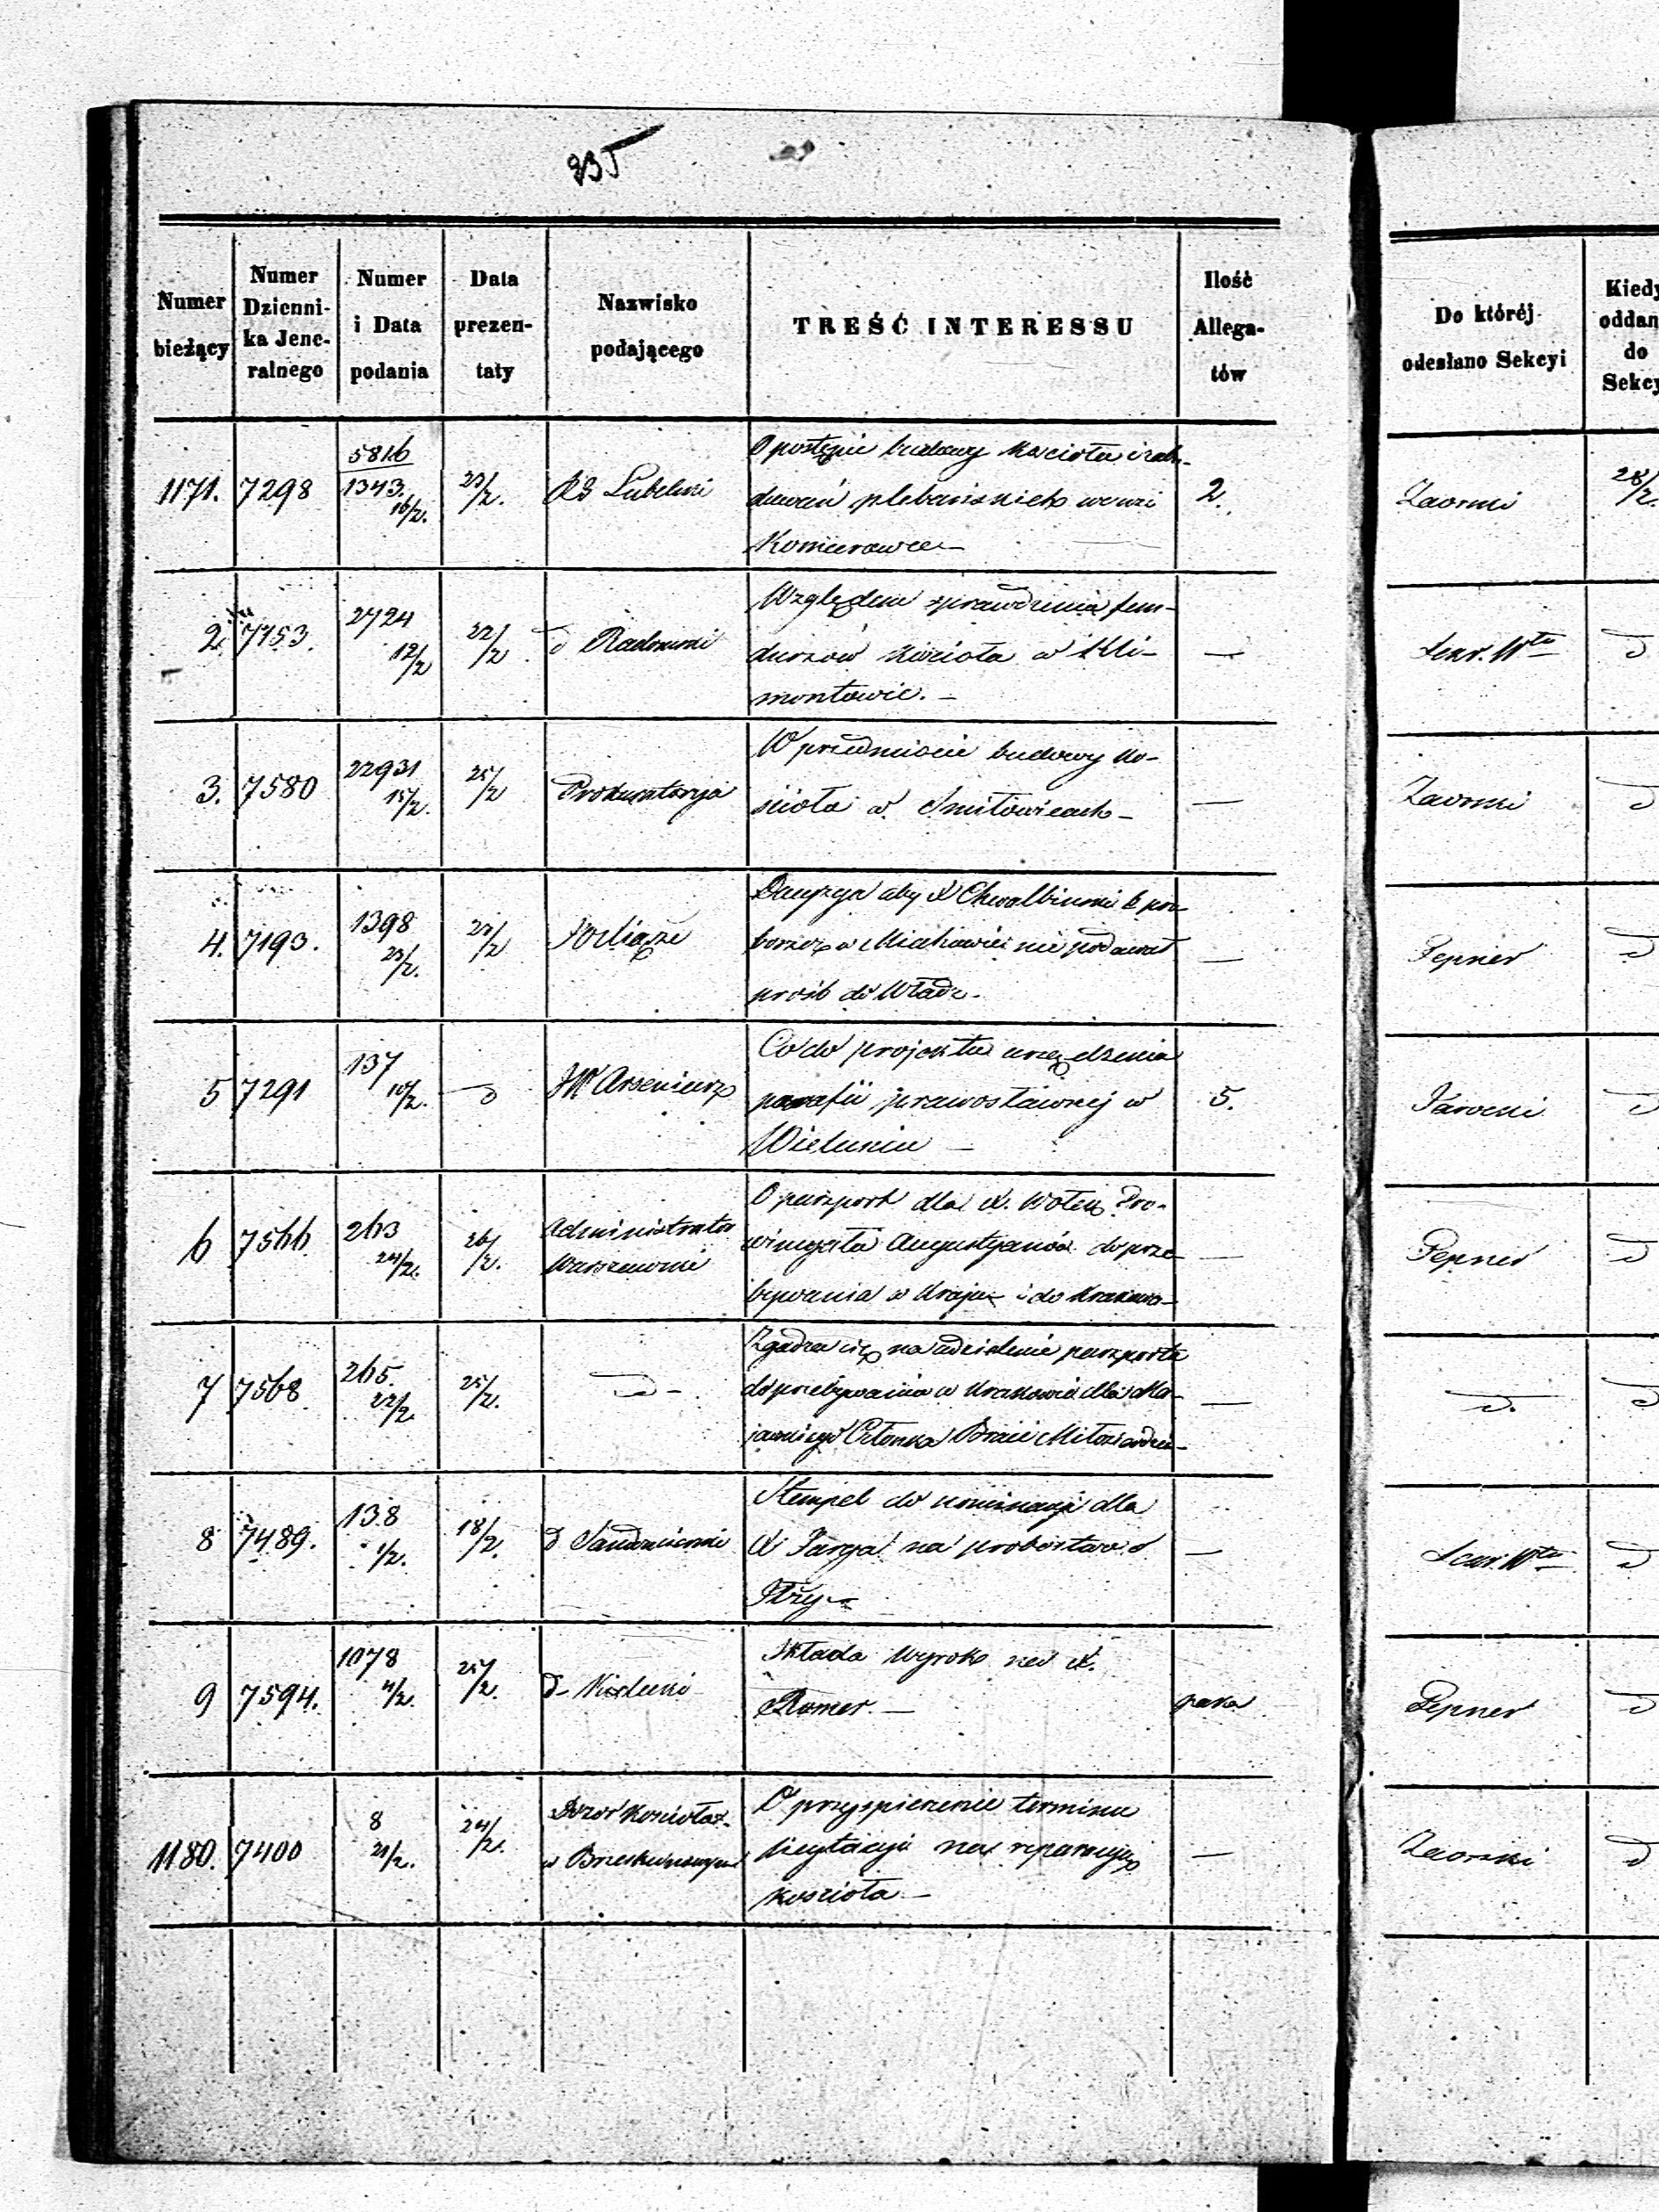 235
Numer bieżący
Numer Dzienni-ka Jene-ralnego
Numer i Data podania
Data prezen-taty
Nazwisko podającego
TREŚĆ INTERESSU
Ilość Allega-tów
Do któréj odesłano Sekcyi
Kiedy oddan do Sekcy
1171. 7298 5816 1343. 16/2. 23/2. RG Lubelski
O postępie budowy kościoła i zabu-
dowań plebańskich we wsi
Komarowce
2. Zaorski 28/2.
2. 7753. 2724 12/2 22/2 d Radomski
Względem sprawdzenia fun-
duszów kościoła w Kli-
montowie. —
— d
3. 7580 22931 15/2. 25/2 Prokuratorja
W przedmiocie budowy ko-
ścioła w
— Zaorski d
4. 7193. 1398 23/2. 27/2
aby X Chwalbiński b pro-
boszcz w nie podawał
prośb do Władz.
— Pepner d
5 7291 137 10/2. d JW Arseniew
Co do projektu urządzenia
parafii prawosławnej w
Wieluniu —
5. Jarocki d
6 7566 263 24/2. 26/2. Administrator
Warszawski
O paszport dla X. Pro-
wincyała Augustyanów do prze
bywania w Kraju i do Krakowa —
— Pepner d
7 7568 265. 22/2. 25/2. — d —
Zgadza się na udzielenie paszportu
do przebywania w Krakowie dla Ma-
jewskiego Członka Braci Miłosierdzia —
— d. d
8 7489. 138 1/2. 18/2. d Sandomierski
Stempel do nominacyi dla
X na probostwo
— d
9 7594. 1078 4/2. 25/2. d Kielecki
Składa wyrok na X.
Romer. —
paka Pepner d
1180. 7400 8 21/2. 24/2. Dozór Kościoła
w
O przyspieszenie terminu
licytacyi na reparacyę
kościoła —
— Zaorski d